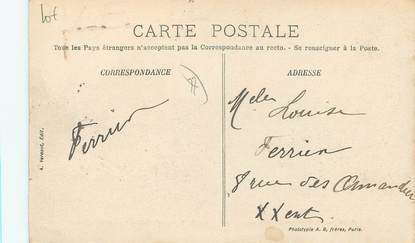 lot
CARTE POSTALE
Tous les Pays étrangers n'acceptent pas la Correspondance au recto. - Se renseigner à la Poste.
CORRESPONDANCE
Ferrien
ADRESSE
Melle Louise
Ferrien
8 rue des Amandiers
XXent.
Phototypie A. B, frères, Paris.